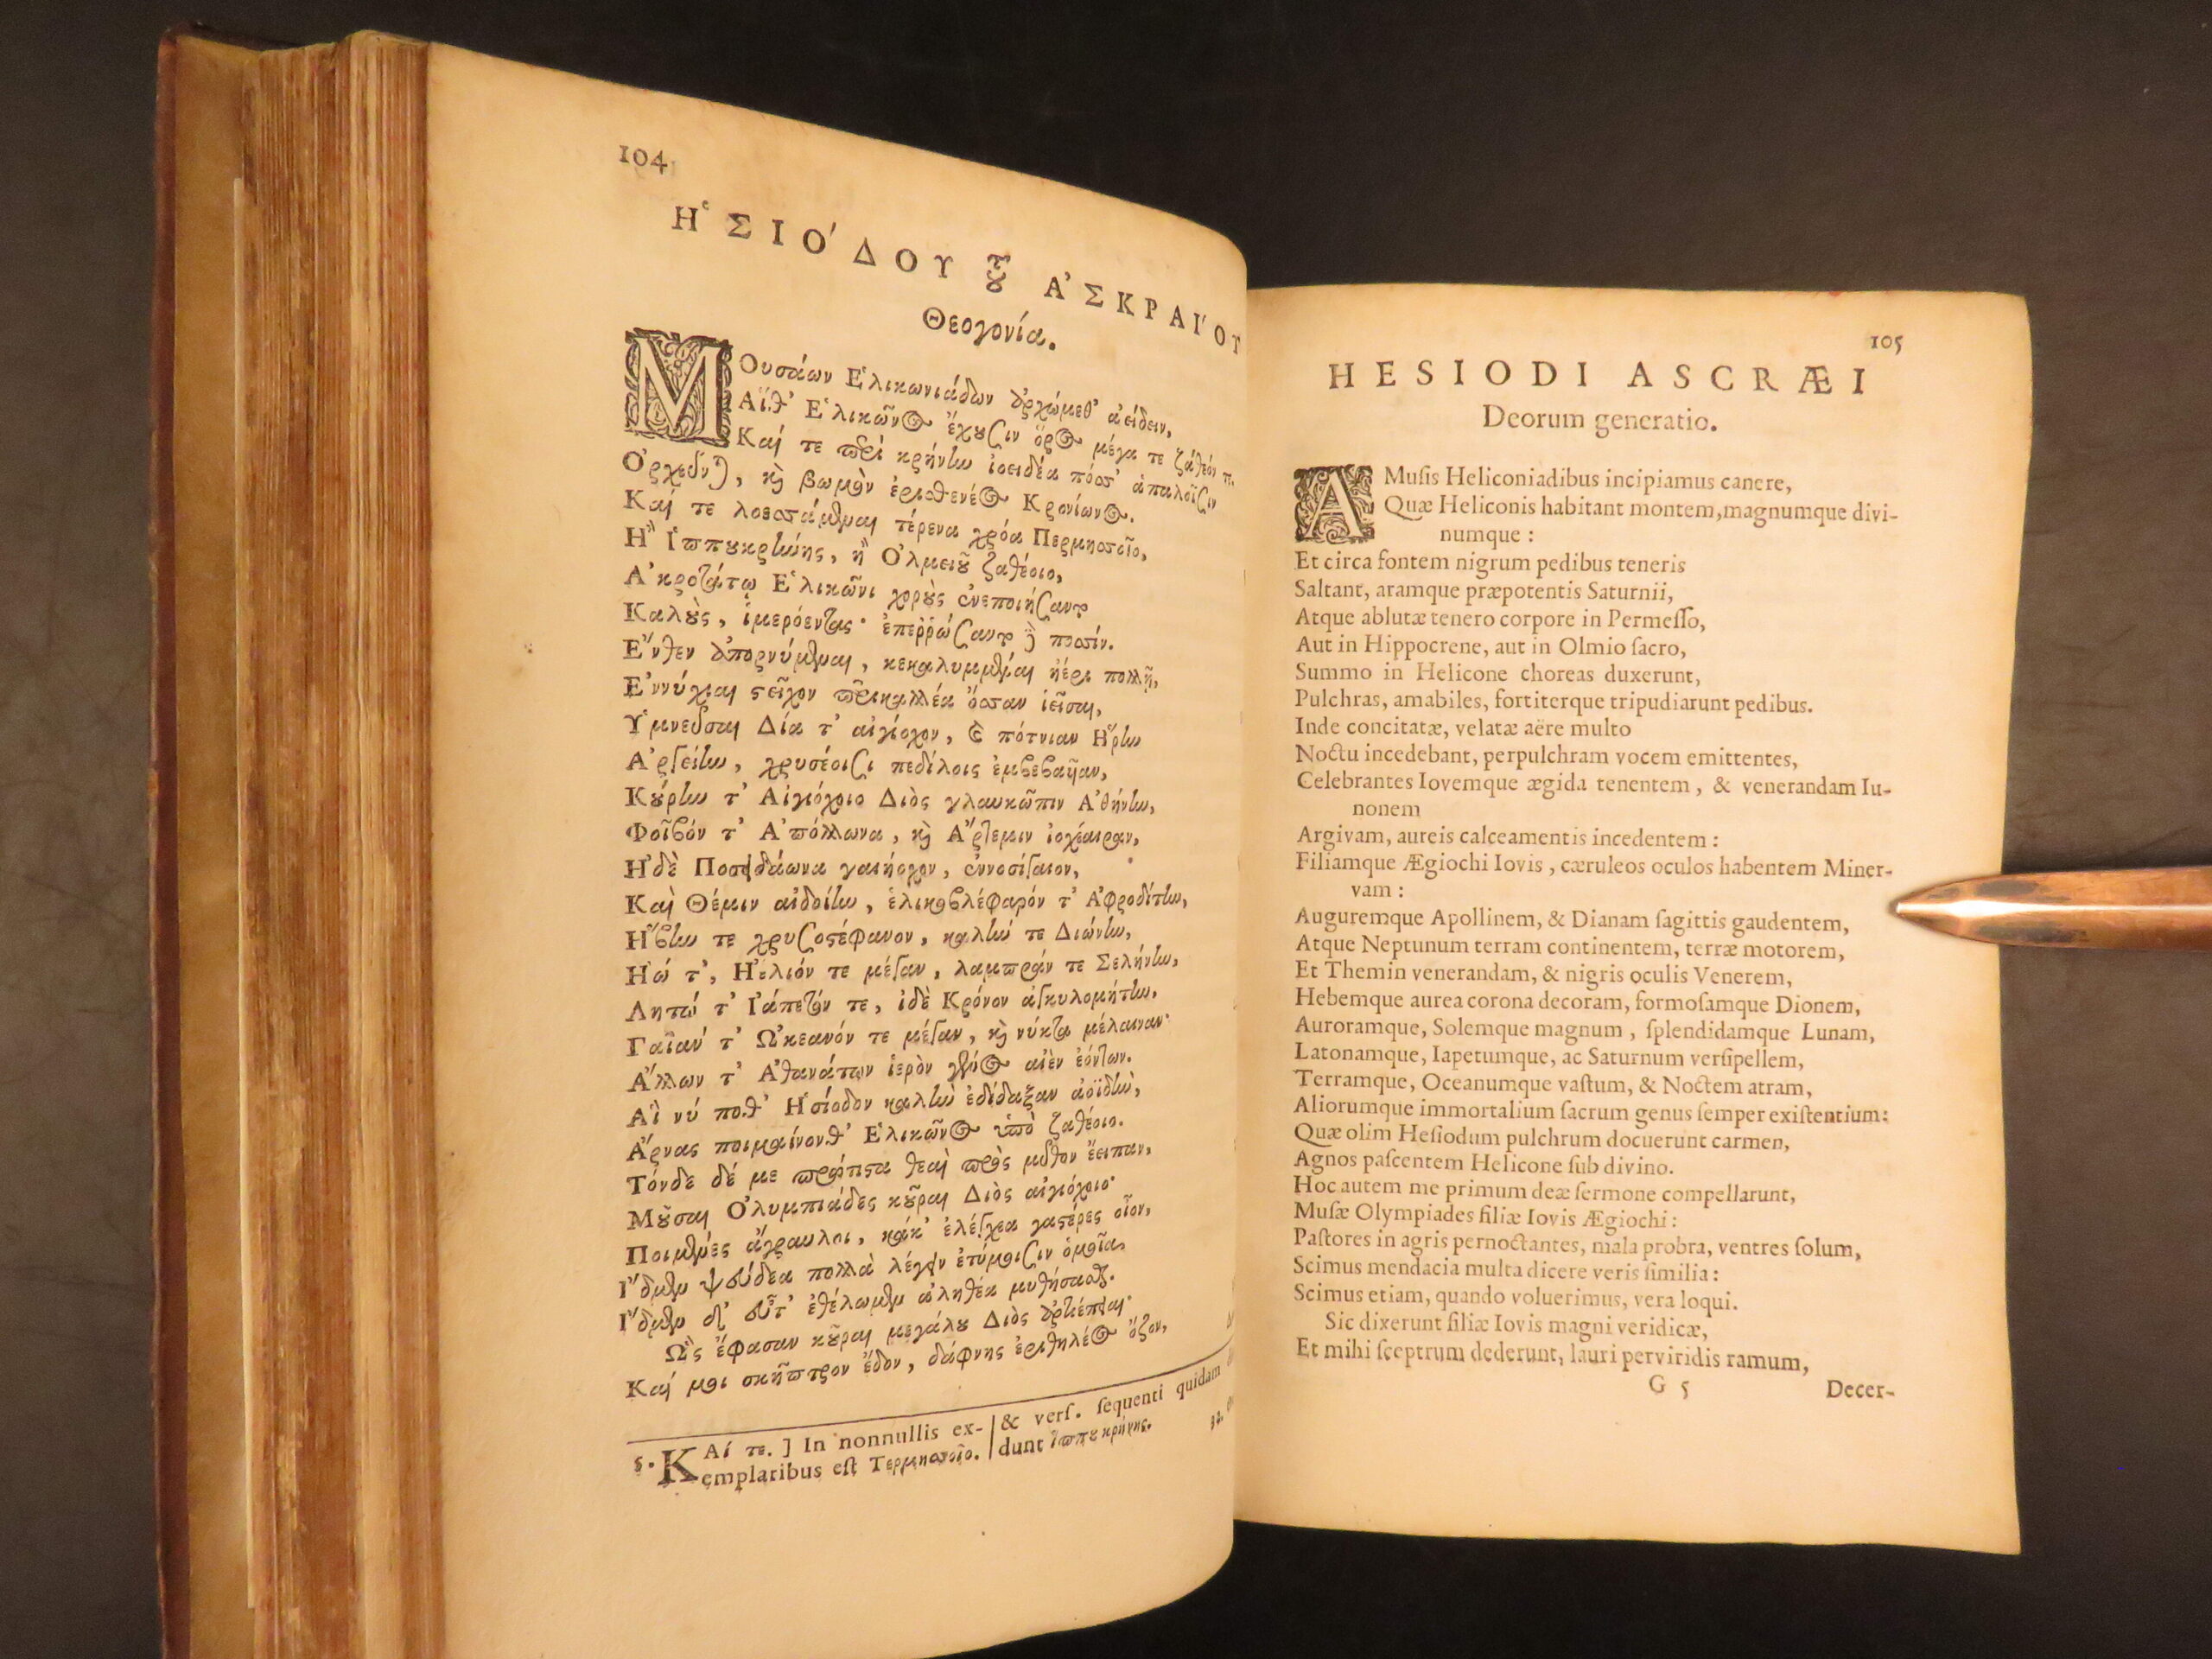 104
ἩΣΙΌΔΟΥ τοῦ ἈΣΚΡΑΊΟΥ
Θεογονία.
ΜΟυσάων Ἑλικωνιάδων ἀρχώμεθ' ἀείδειν,
Αἵθ' Ἑλικῶνος ἔχουσιν ὄρος μέγα τε ζάθεόν τε,
Καί τε περὶ κρήνην ἰοειδέα πόσσ' ἁπαλοῖσιν
Ὀρχεῦνται, καὶ βωμὸν ἐρισθενέος Κρονίωνος.
Καί τε λοεσσάμεναι τέρενα χρόα Περμησσοῖο,
Ἢ Ἱππουκρήνης, ἢ Ὀλμειοῦ ζαθέοιο,
Ἀκροτάτῳ Ἑλικῶνι χοροὺς ἐνεποιήσαντο
Καλοὺς, ἱμερόεντας· ἐπερρώσαντο δὲ ποσσίν.
Ἔνθεν ἀπορνύμεναι, κεκαλυμμέναι ἠέρι πολλῇ,
Ἐννύχιαι στεῖχον περικαλλέα ὄσσαν ἱεῖσαι,
Ὑμνεῦσαι Δία τ' αἰγίοχον, καὶ πότνιαν Ἥρην
Ἀργείην, χρυσέοισι πεδίλοις ἐμβεβαυῖαν,
Κούρην τ' Αἰγιόχοιο Διὸς γλαυκῶπιν Ἀθήνην,
Φοῖβόν τ' Ἀπόλλωνα, καὶ Ἄρτεμιν ἰοχέαιραν,
Ἠδὲ Ποσειδάωνα γαιήοχον, ἐννοσίγαιον,
Καὶ Θέμιν αἰδοίην, ἑλικοβλέφαρόν τ' Ἀφροδίτην,
Ἥβην τε χρυσοστέφανον, καλήν τε Διώνην,
Ἠώ τ', Ἠέλιόν τε μέγαν, λαμπράν τε Σελήνην,
Λητώ τ' Ἰάπετόν τε, ἰδὲ Κρόνον ἀγκυλομήτην,
Γαῖάν τ' Ὠκεανόν τε μέγαν, καὶ νύκτα μέλαιναν·
Ἄλλων τ' Ἀθανάτων ἱερὸν γένος αἰὲν ἐόντων.
Αἵ νύ ποθ' Ἡσίοδον καλὴν ἐδίδαξαν ἀοιδὴν,
Ἄρνας ποιμαίνονθ' Ἑλικῶνος ὑπὸ ζαθέοιο.
Τόνδε δέ με πρώτιστα θεαὶ πρὸς μῦθον ἔειπαν,
Μοῦσαι Ὀλυμπιάδες κοῦραι Διὸς αἰγιόχοιο·
Ποιμένες ἄγραυλοι, κάκ' ἐλέγχεα γαστέρες οἶον,
Ἴδμεν ψεύδεα πολλὰ λέγειν ἐτύμοισιν ὁμοῖα,
Ἴδμεν δ' εὖτ' ἐθέλωμεν ἀληθέα μυθήσασθαι.
Ὣς ἔφασαν κοῦραι μεγάλου Διὸς ἀρτιέπειαι·
Καί μοι σκῆπτρον ἔδον, δάφνης ἐριθηλέος ὄζον,
5. ΚΑί τε. ] In nonnullis ex-
emplaribus est Τερμησσοῖο.
& vers. sequenti quidam
dunt Ἵππου κρήνης.
105
HESIODI ASCRÆI
Deorum generatio.
A Musis Heliconiadibus incipiamus canere,
Quæ Heliconis habitant montem, magnumque divi-
numque :
Et circa fontem nigrum pedibus teneris
Saltant, aramque præpotentis Saturnii,
Atque ablutæ tenero corpore in Permesso,
Aut in Hippocrene, aut in Olmio sacro,
Summo in Helicone choreas duxerunt,
Pulchras, amabiles, fortiterque tripudiarunt pedibus.
Inde concitatæ, velatæ aëre multo
Noctu incedebant, perpulchram vocem emittentes,
Celebrantes Iovemque ægida tenentem, & venerandam Iu-
nonem
Argivam, aureis calceamentis incedentem :
Filiamque Ægiochi Iovis, cæruleos oculos habentem Miner-
vam :
Auguremque Apollinem, & Dianam sagittis gaudentem,
Atque Neptunum terram continentem, terræ motorem,
Et Themin venerandam, & nigris oculis Venerem,
Hebemque aurea corona decoram, formosamque Dionem,
Auroramque, Solemque magnum, splendidamque Lunam,
Latonamque, Iapetumque, ac Saturnum versipellem,
Terramque, Oceanumque vastum, & Noctem atram,
Aliorumque immortalium sacrum genus semper existentium:
Quæ olim Hesiodum pulchrum docuerunt carmen,
Agnos pascentem Helicone sub divino.
Hoc autem me primum deæ sermone compellarunt,
Musæ Olympiades filiæ Iovis Ægiochi :
Pastores in agris pernoctantes, mala probra, ventres solum,
Scimus mendacia multa dicere veris similia :
Scimus etiam, quando voluerimus, vera loqui.
Sic dixerunt filiæ Iovis magni veridicæ,
Et mihi sceptrum dederunt, lauri perviridis ramum,
G 5
Decer-